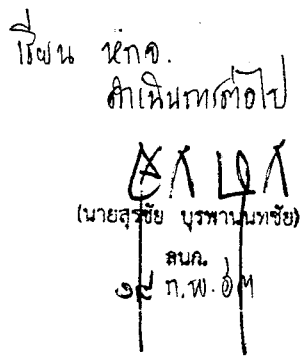 เรียน หกจ.
ดำเนินการต่อไป
(นายสุรชัย บุรพานนทชัย)
ลนก.
ก.พ.